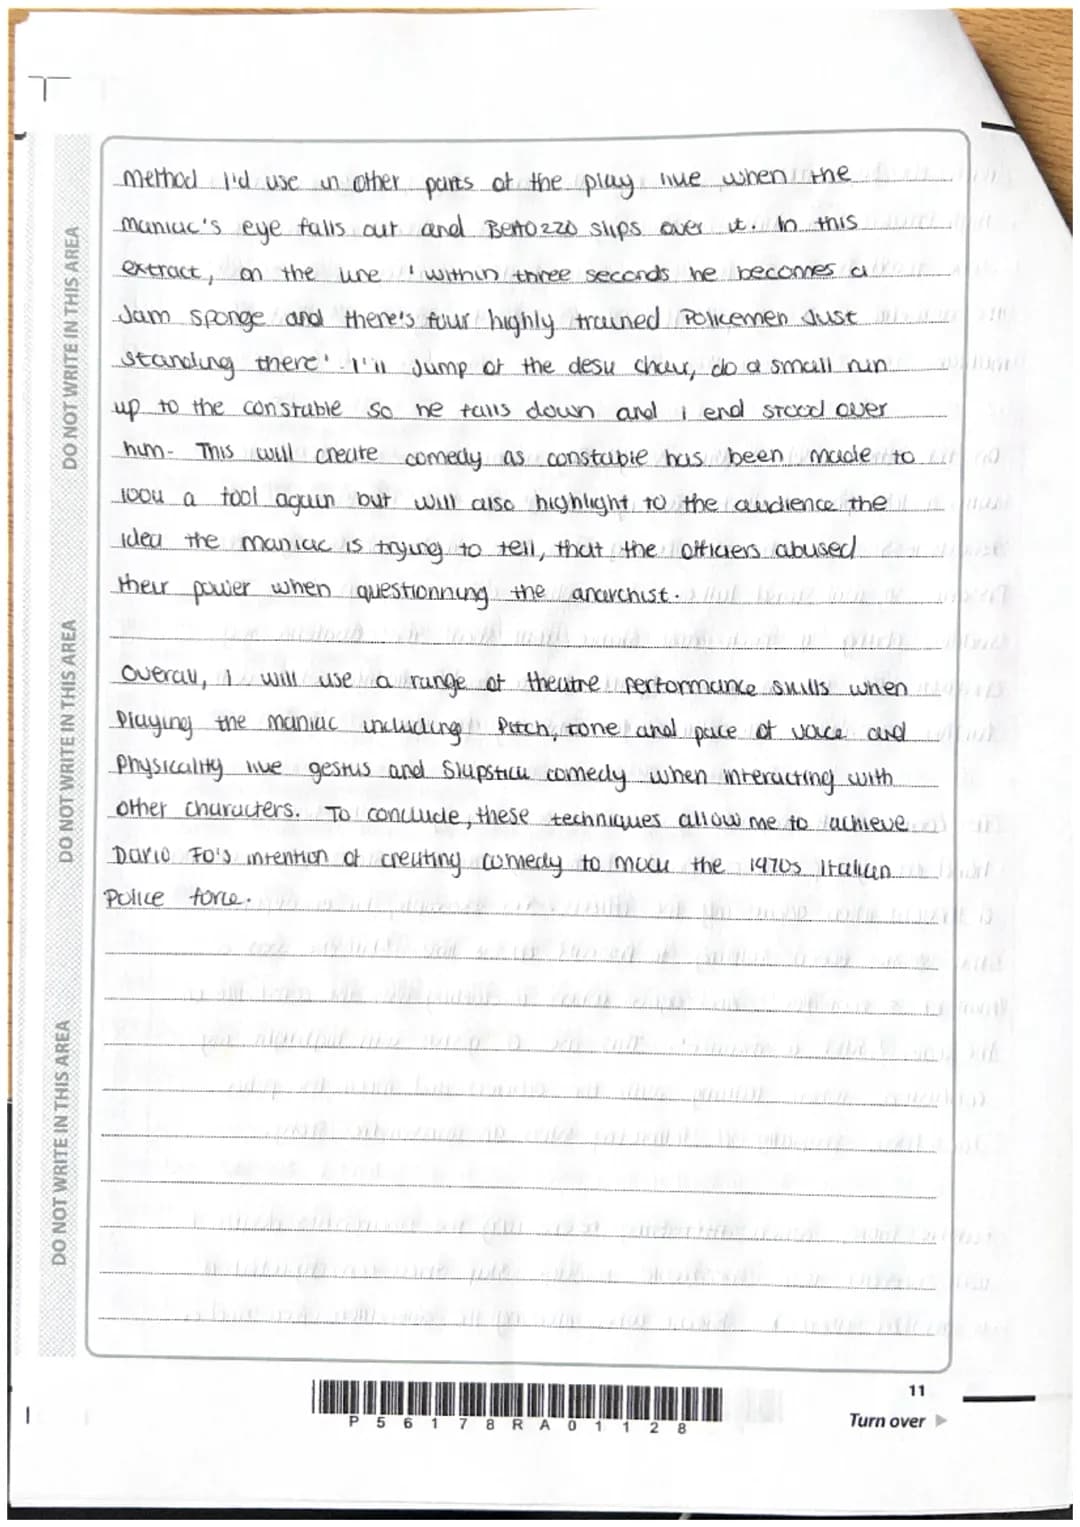 DO NOT WRITE IN THIS AREA
DO NOT WRITE IN THIS AREA
DO NOT WRITE IN THIS AREA
method I'd use in other parts of the play like when the
maniac's eye falls out and Bertozzo slips over it. In this
extract, on the line 'within three seconds he becomes a
Jam sponge and there's four highly trained Policemen Just
standing there' I'll Jump of the desk chair, do a small run
up to the constable so he falls down and I end stood over
him. This will create comedy as constable has been made to
look a fool again but will also highlight to the audience the
idea the maniac is trying to tell, that the officiers abused
their power when questionning the anarchist.
Overall, I will use a range of theatre performance skills when
Playing the maniac including Pitch, tone and pace of voice and
Physicality like gestus and Slapstick comedy when interacting with
other characters. To conclude, these techniques allow me to achieve
Dario Fo's intention of creating comedy to mock the 1970s Italian
Police force.
P 5 6 1 7 8 R A 0 1 1 2 8
11
Turn over